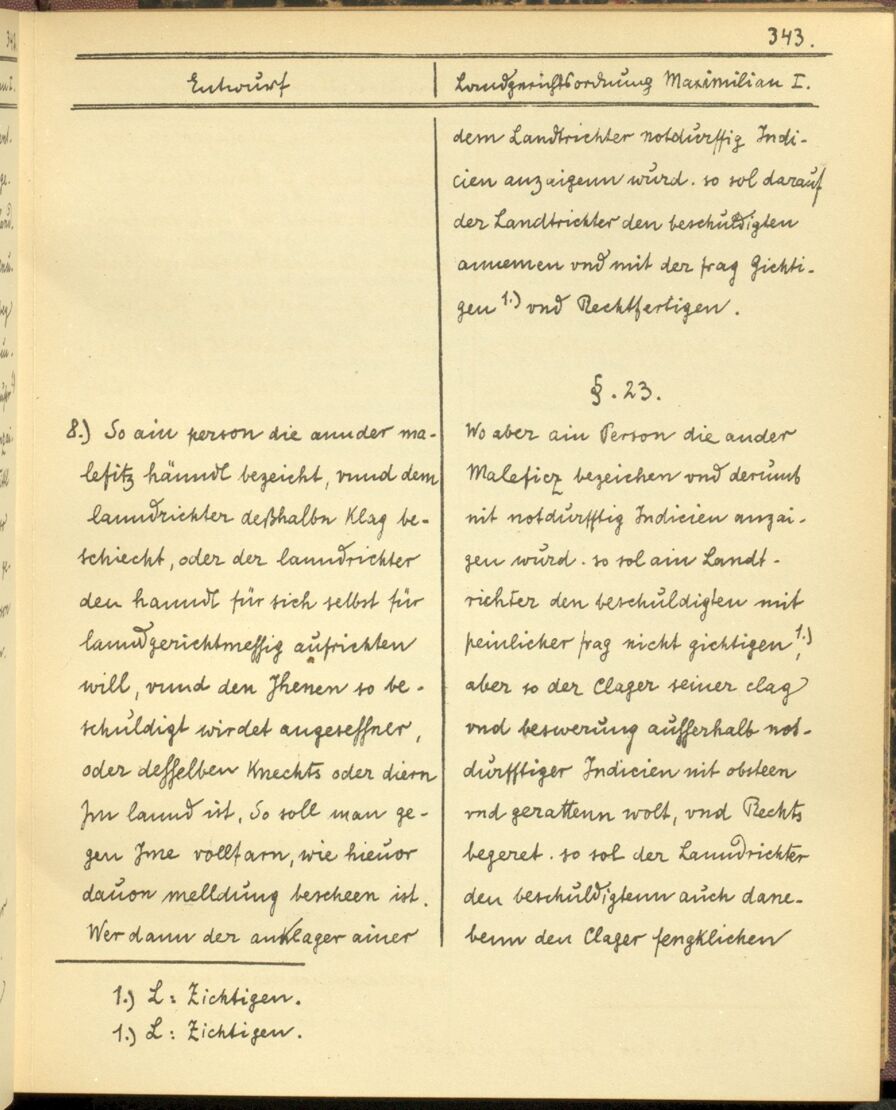 343.
Entwurf
Landgerichtsordnung Maximilian I.
dem Landtrichter notdurffig Indi-
cien anzaigenn wurd. so sol darauf
der Landtrichter den beschuldigten
annemen vnd mit der frag Gichti-
gen 1.) vnd Rechtfertigen.
§. 23.
8.) So ain person die annder ma-
lefitz hänndl bezeicht, vnnd dem
lanndrichter deßhalbn Klag be-
schiecht, oder der lanndrichter
den hanndl für sich selbst für
lanndgerichtmessig aufrichten
will, vnnd den Jhenen so be-
schuldigt wirdet angesessner,
oder desselben Knechts oder diern
Jm lannd ist, So soll man ge-
gen Jme vollfarn, wie hieuor
dauon melldung bescheen ist.
Wer dann der anklager ainer
Wo aber ain Person die ander
Maleficz bezeichen vnd derumb
nit notdurfftig Indicien anzai-
gen wurd. so sol ain Landt-
richter den beschuldigten mit
peinlicher frag nicht gichtigen 1.),
aber so der Clager seiner clag
vnd beswerung ausserhalb not-
durfftiger Indicien nit obsteen
vnd gerattenn wolt, vnd Rechts
begeret. so sol der Lanndrichter
den beschuldigtenn auch dane-
benn den Clager fengklichen
1.) L: Zichtigen.
1.) L: Zichtigen.